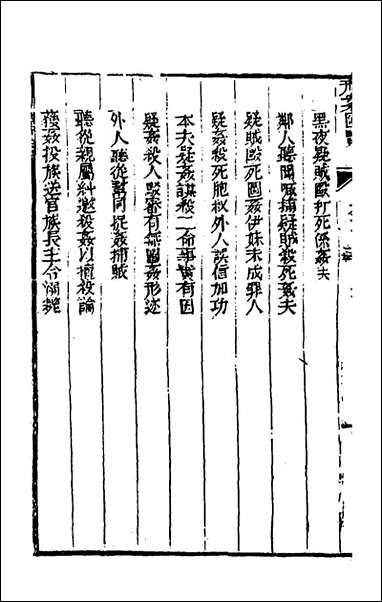 刑案匯覽
黑夜疑賊毆打死係姦夫
鄰人聽聞喊捕疑賊殺死姦夫
疑賊毆死圖姦伊妹未成罪人
疑姦殺死胞叔外人誤信加功
本夫疑姦謀殺二命事實有因
疑姦殺人嚴審有無圖姦形迹
外人聽從幫同捉姦捕賊
聽從親屬糾邀殺姦以擅殺論
獲姦投族送官族長主令溺斃